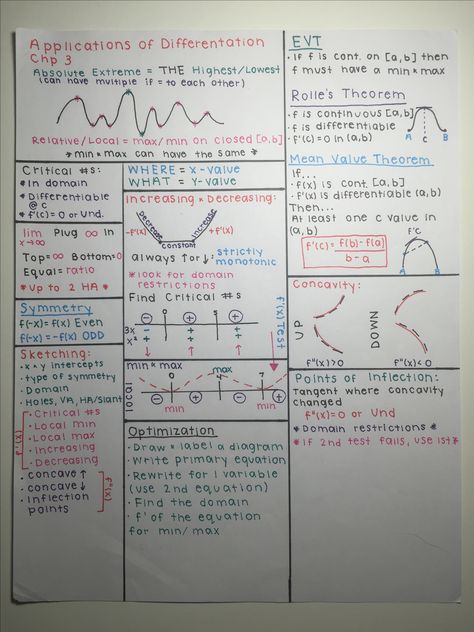 Applications of Differentation
Chp 3
Absolute Extreme = THE Highest/Lowest
(can have multiple if = to each other)
Relative/Local = max/min on closed [a,b]
* min * max can have the same *
Critical #s:
* In domain
* Differentiable
@ c
* f'(c) = 0 or Und.
lim Plug ∞ in
x→∞
Top=∞ Bottom=0
Equal= ratio
* Up to 2 HA *
Symmetry
f(-x)=f(x) Even
f(-x)=-f(x) ODD
Sketching:
• x * y intercepts
• type of symmetry
• Domain
• Holes, VA, HA/Slant
• Critical #s
• Local min
• Local max
• Increasing
• Decreasing
f'(x)
• concave ↑
• concave ↓
• Inflection
points
f"(x)
WHERE = x-value
WHAT = y-value
Increasing * Decreasing:
Decrease
increase
-f'(x)
+f'(x)
constant
always ↑ or ↓: strictly
monotonic
* look for domain
restrictions
Find Critical #s
f'(x) Test
0 5
- + +
3x - + +
x² + + +
↓ ↑ ↑
min * max
local
0 4 7
max
- + - +
min min
Optimization
• Draw * label a diagram
• Write primary equation
• Rewrite for 1 variable
(use 2nd equation)
• Find the domain
• f' of the equation
for min/max
EVT
• If f is cont. on [a,b] then
f must have a min * max
Rolle's Theorem
• f is continuous [a,b]
• f is differentiable
• f'(c)=0 in (a,b)
A C B
Mean Value Theorem
If...
• f(x) is cont. [a,b]
• f'(x) is differentiable (a,b)
Then...
At least one c value in
(a,b)
f'(c) = f(b)-f(a)
b-a
f'C
A B
Concavity:
UP
DOWN
f"(x)>0
f"(x)<0
Points of Inflection:
Tangent where concavity
changed
f"(x)=0 or Und
* Domain restrictions *
* If 2nd test fails, use 1st *